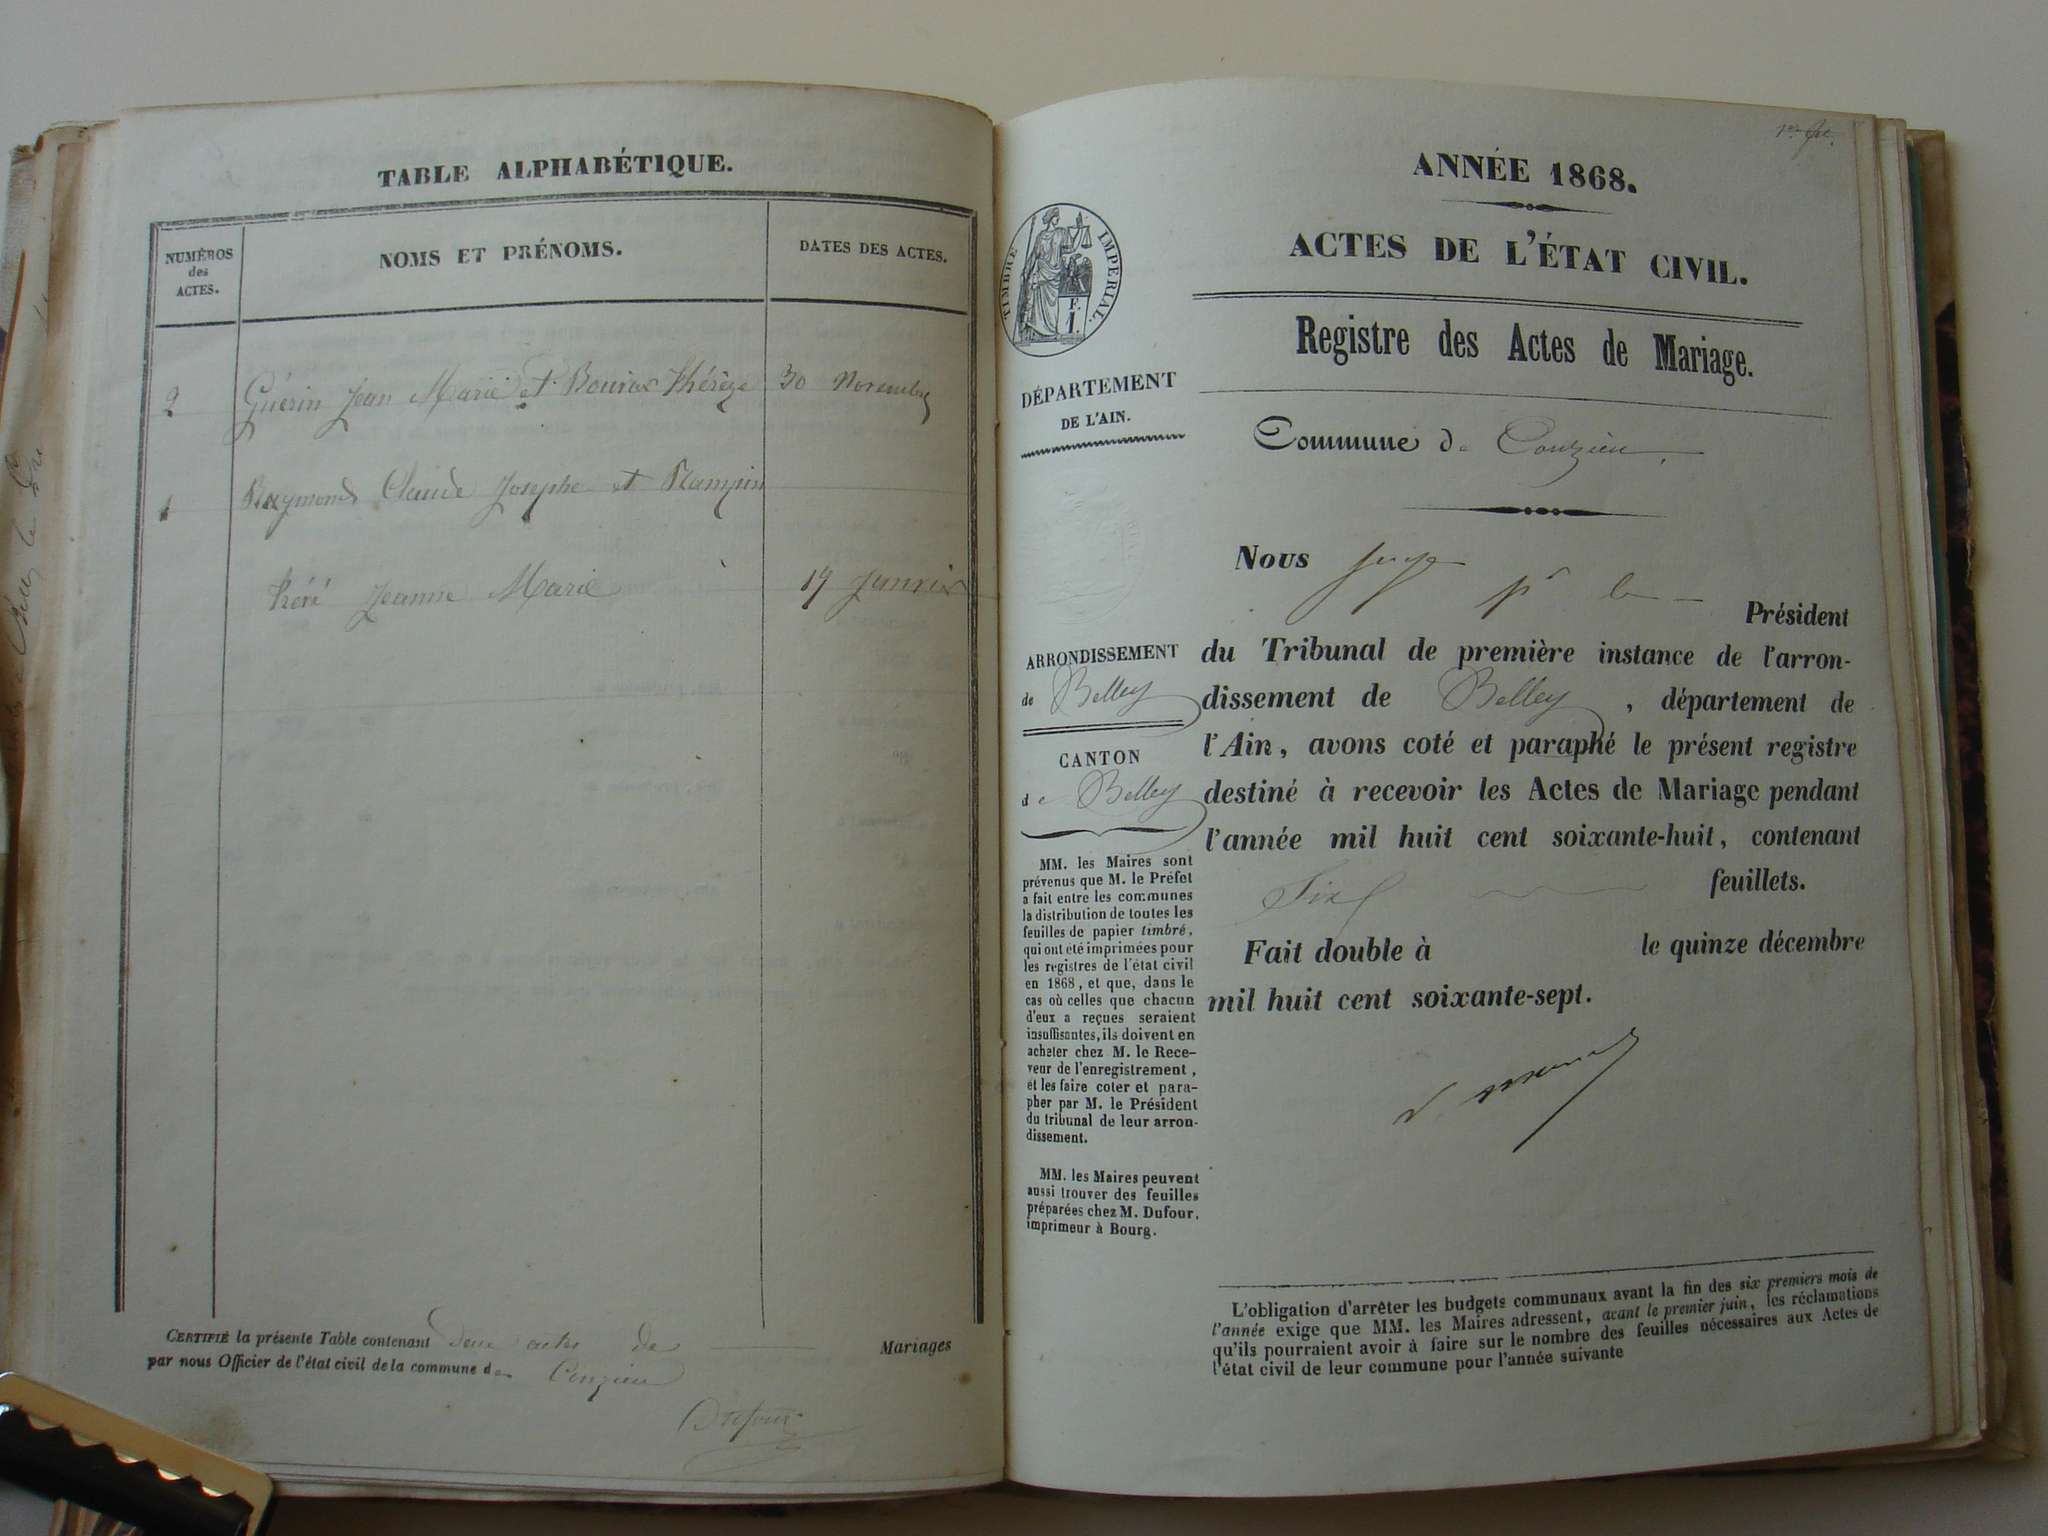 TABLE ALPHABÉTIQUE.
NUMÉROS
des
ACTES.
NOMS ET PRÉNOMS.
DATES DES ACTES.
2 Guérin Jean Marie et Thérèze 30 Novembre
1 Raymond Claude Josephe et
Jeanne Marie 19 Janvier
CERTIFIÉ la présente Table contenant deux actes de Mariages
par nous Officier de l'état civil de la commune de Conzieu
1er
ANNÉE 1868.
ACTES DE L'ÉTAT CIVIL.
TIMBRE IMPÉRIAL.
F.
1.
Registre des Actes de Mariage.
DÉPARTEMENT
DE L'AIN.
Commune de Conzieu
Nous juge
pr le Président
du Tribunal de première instance de l'arron-
dissement de Belley, département de
l'Ain, avons coté et paraphé le présent registre
destiné à recevoir les Actes de Mariage pendant
l'année mil huit cent soixante-huit, contenant
Six feuillets.
Fait double à le quinze décembre
mil huit cent soixante-sept.
ARRONDISSEMENT
de Belley
CANTON
de Belley
MM. les Maires sont
prévenus que M. le Préfet
a fait entre les communes
la distribution de toutes les
feuilles de papier timbré,
qui ont été imprimées pour
les registres de l'état civil
en 1868, et que, dans le
cas où celles que chacun
d'eux a reçues seraient
insuffisantes, ils doivent en
acheter chez M. le Rece-
veur de l'enregistrement,
et les faire coter et para-
pher par M. le Président
du tribunal de leur arron-
dissement.
MM. les Maires peuvent
aussi trouver des feuilles
préparées chez M. Dufour,
imprimeur à Bourg.
L'obligation d'arrêter les budgets communaux avant la fin des six premiers mois de
l'année exige que MM. les Maires adressent, avant le premier juin, les réclamations
qu'ils pourraient avoir à faire sur le nombre des feuilles nécessaires aux Actes de
l'état civil de leur commune pour l'année suivante